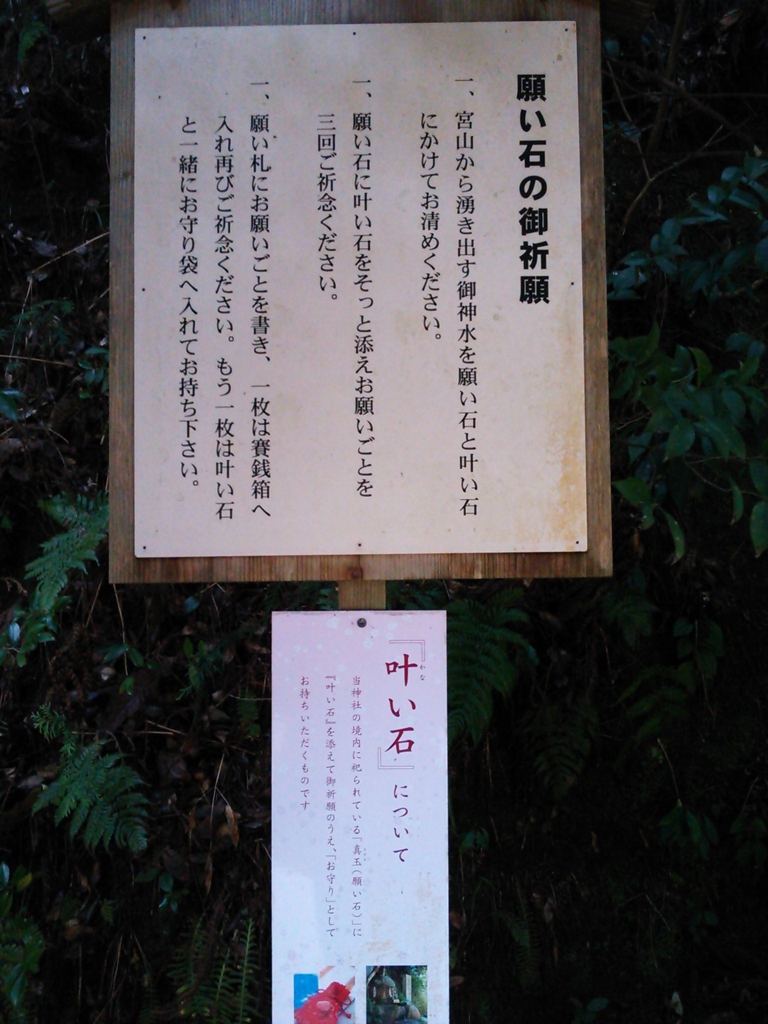 願い石の御祈願
一、宮山から湧き出す御神水を願い石と叶い石
にかけてお清めください。
一、願い石に叶い石をそっと添えお願いごとを
三回ご祈念ください。
一、願い札にお願いごとを書き、一枚は賽銭箱へ
入れ再びご祈念ください。もう一枚は叶い石
と一緒にお守り袋へ入れてお持ち下さい。
『叶い石』について
かな
当神社の境内に祀られている「真玉（願い石）」に
『叶い石』を添えて御祈願のうえ、「お守り」として
お持ちいただくものです